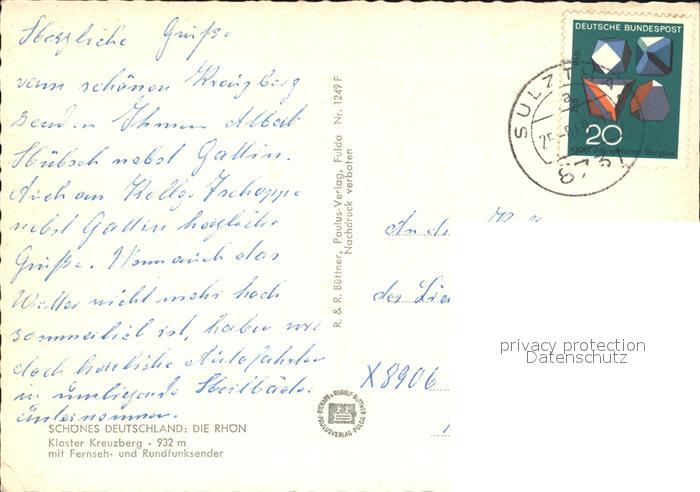 Herzliche Grüße
vom schönen Kreuzberg
senden Ihnen Albert
Hübsch nebst Gattin.
Auch an Kollg. Zschoppe
nebst Gattin herzliche
Grüße. Wenn auch das
Wetter nicht mehr hoch
sommerlich ist, haben wir
doch herrliche Autofahrten
in umliegende Heilbäder
unternommen.
SCHÖNES DEUTSCHLAND: DIE RHÖN
Kloster Kreuzberg - 932 m
mit Fernseh- und Rundfunksender
R. & R. Büttner, Paulus-Verlag, Fulda Nr. 1249 F
Nachdruck verboten
RICHARD & RUDOLF BÜTTNER
PAULUSVERLAG · FULDA
DEUTSCHE BUNDESPOST
20
1000 Jahre Harzer Bergbau
SULZTHAL
a
8731
An de
der Lie
X8906
privacy protection
Datenschutz